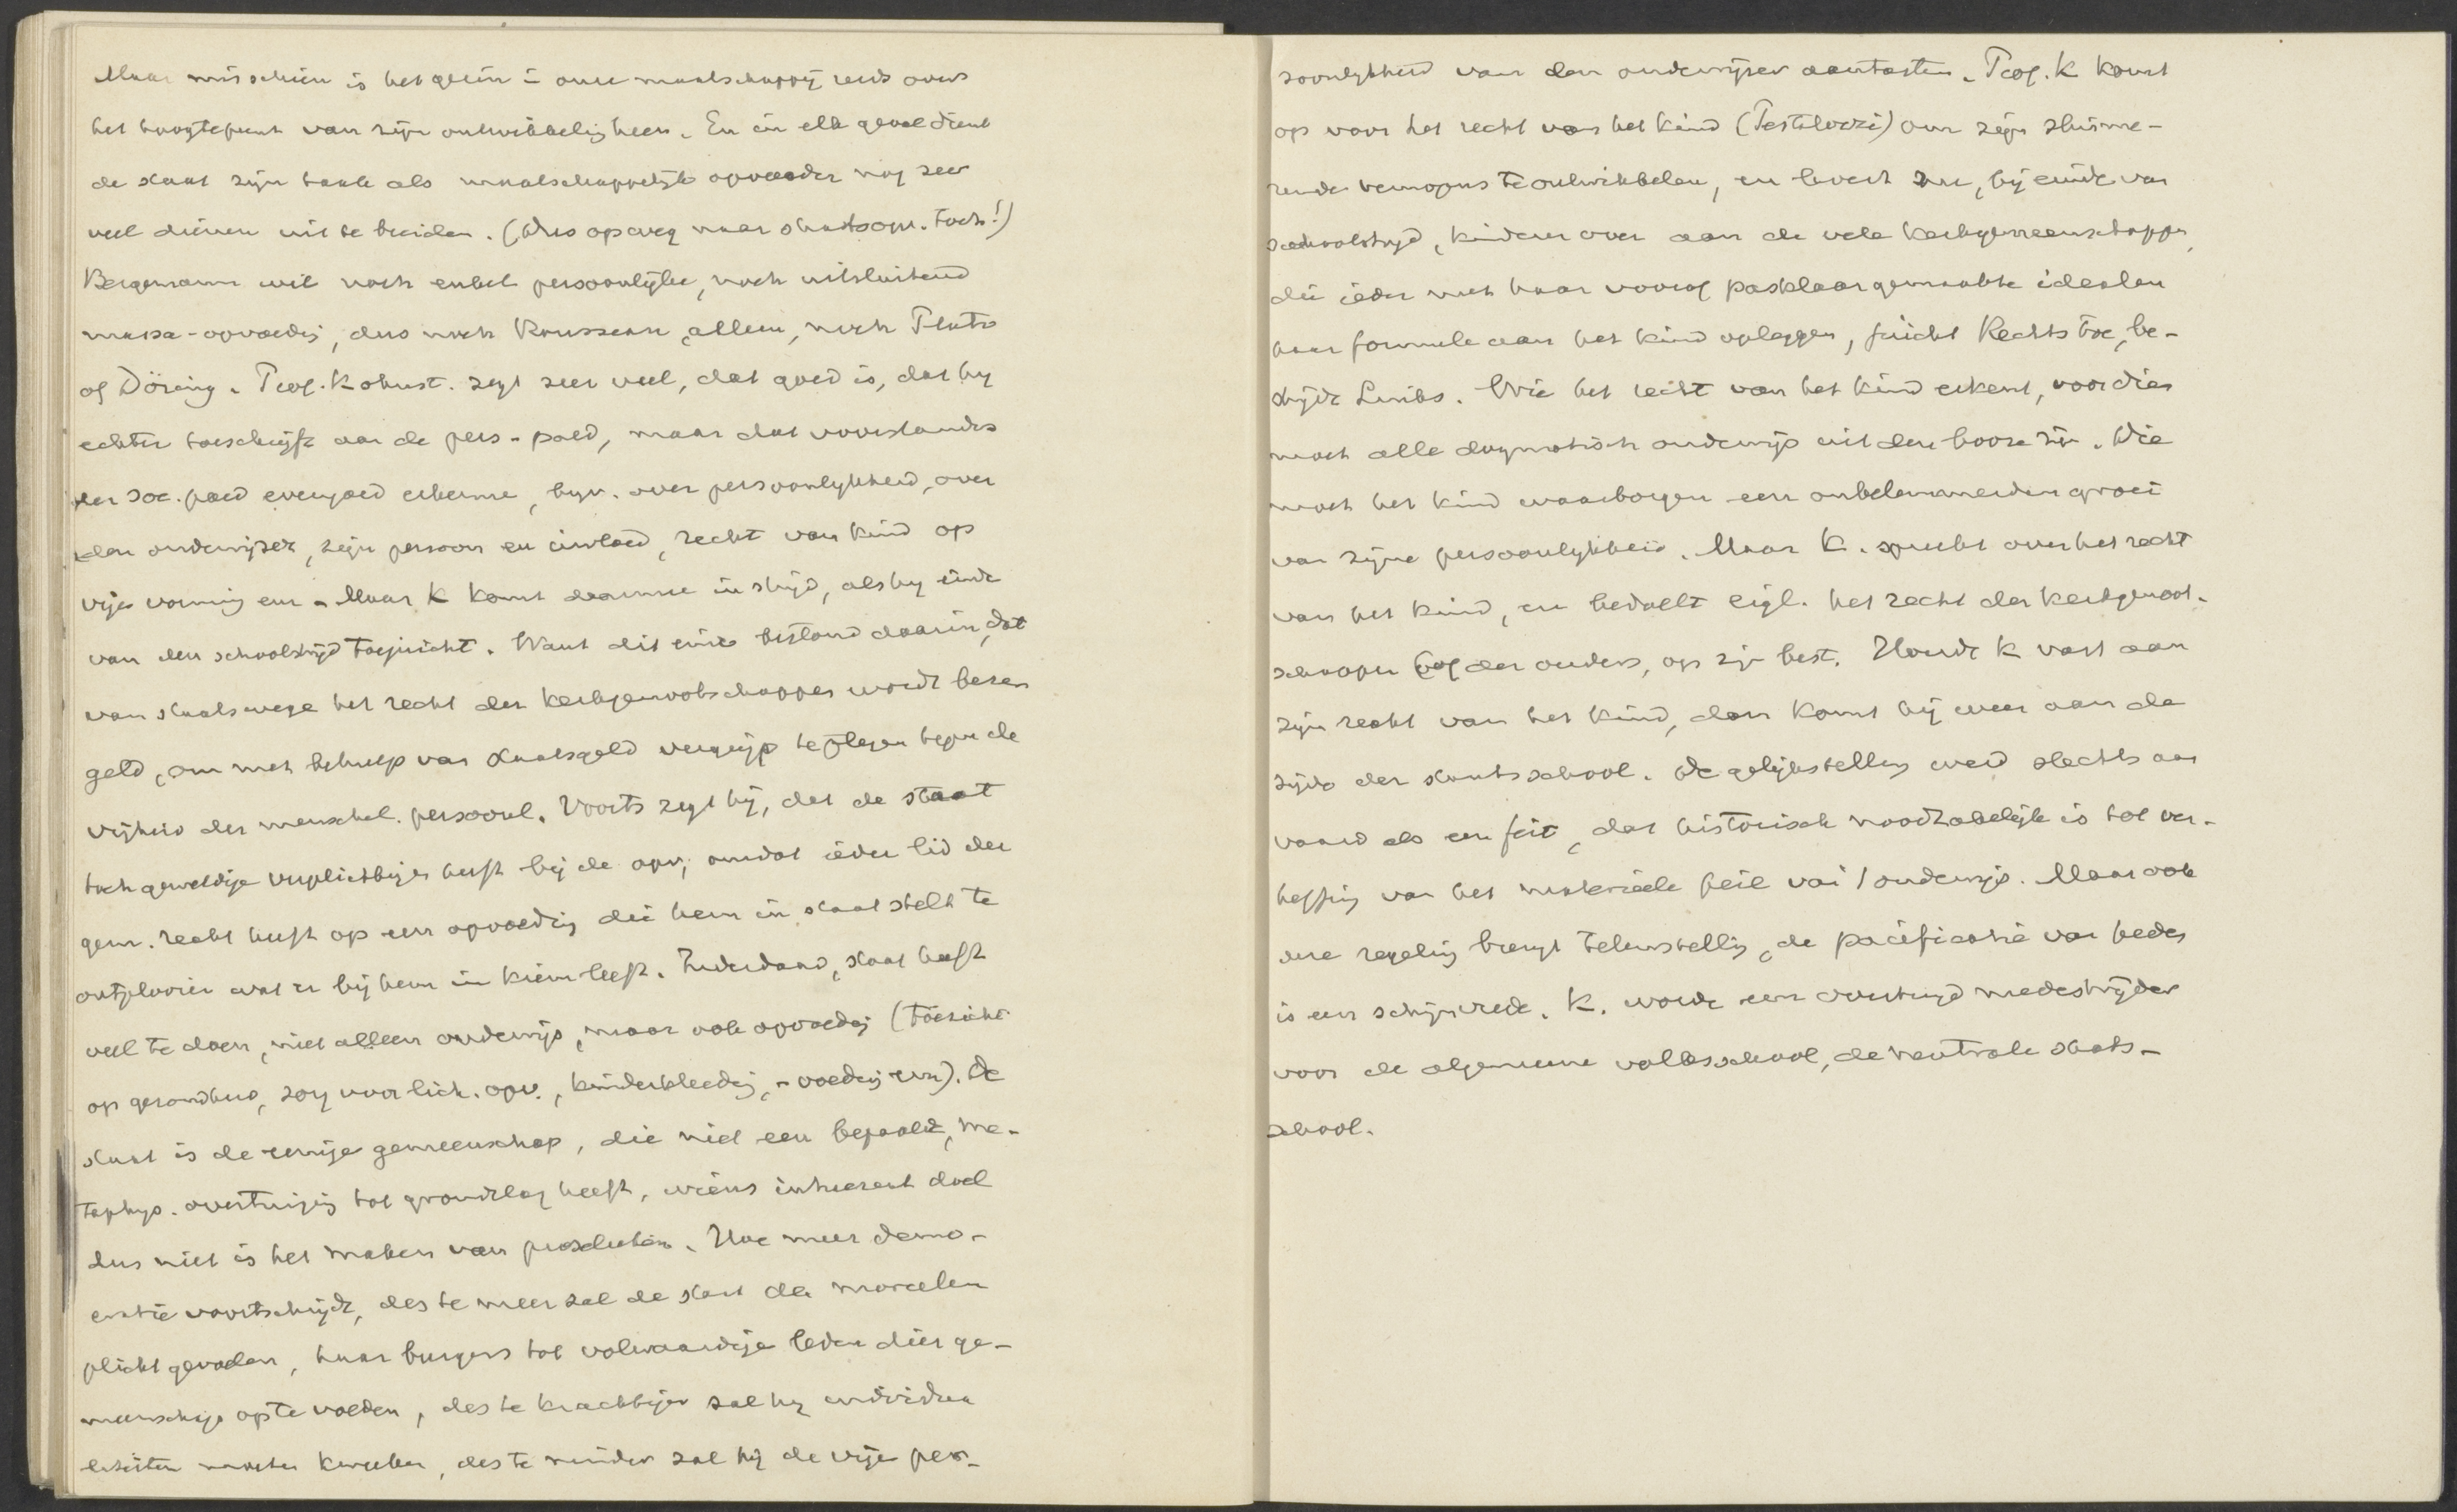 Maar misschien is het gezin in onze maatschappij reeds over
het hoogtepunt van zijn ontwikkeling heen. En in elk geval dient
de staat zijn taak als maatschappelijk opvoeder nog zeer
veel dieren uit te breiden. (Dus op weg naar staatsopv. toch!)
Bergemann wil noch enkel persoonlijke, noch uitsluitend
massa-opvoeding, dus noch Rousseau alleen, noch Plato
of Döring. Prof. Kohnst. zegt zeer veel, dat goed is, dat hij
echter toeschrijft aan de pers-paed, maar dat voorstanders
der soc. paed evengoed erkennen, bijv. over persoonlijkheid, over
den onderwijzer, zijn persoon en invloed, recht van kind op
vrije vorming enz. Maar K komt daarmee in strijd, als hij einde
van den schoolstrijd toejuicht. Want dit einde bestond daarin, dat
van staatswege het recht der kerkgenootschappen wordt beze-
geld, om met behulp van staatsgeld vergrijp te plegen tegen de
vrijheid der menschel. persoonl. Voorts zegt hij, dat de staat
toch geweldige verplichtingen heeft bij de opv, omdat ieder lid der
gem. recht heeft op een opvoeding die hem in staat stelt te
ontplooien wat er bij hem in kiem leeft. Inderdaad, staat heeft
veel te doen, niet alleen onderwijs, maar ook opvoeding (toezicht
op gezondheid, zorg voor lich. opv., kinderkleeding, -voeding enz). De
staat is de eenige gemeenschap, die niet een bepaalde, me-
taphys. overtuiging tot grondslag heeft, wiens inhaerent doel
dus niet is het maken van proselieten. Hoe meer demo-
cratie voortschrijdt, des te meer zal de staat de moreelen
plicht gevoelen, haar burgers tot volwaardige leden dier ge-
meenschap op te voeden, des te krachtiger zal hij individua
liteiten moeten kweeken, des te minder zal hij de vrije per-
soonlijkheid van den onderwijzer aantasten. Prof. K komt
op voor het recht van het kind (Pestalozzi) om zijn sluime-
rende vermogens te ontwikkelen, en levert nu, bij einde van
schoolstrijd, kinderen over aan de vele kerkgemeenschappen,
die ieder met haar vooraf pasklaar gemaakte idealen
haar formule aan het kind opleggen, juicht Rechts toe, be-
strijdt Links. Wie het recht van het kind erkent, voor dien
moet alle dogmatisch onderwijs uit den booze zijn. Die
moet het kind waarborgen een onbelemmerden groei
van zijne persoonlijkheid. Maar K. spreekt over het recht
van het kind, en bedoelt eigl. het recht der kerkgenoot-
schappen of der ouders, op zijn best. Houdt K vast aan
zijn recht van het kind, dan komt hij weer aan de
zijde der staatsschool. De gelijkstelling werd slechts aan
vaard als een feit, dat historisch noodzakelijk is tot ver-
heffing van het materiëele peil van 't onderwijs. Maar ook
deze regeling brengt teleurstelling, de pacificatie van heden
is een schijnvrede. K. worde een overtuigd medestrijder
voor de algemeene volksschool, de neutrale staats-
school.